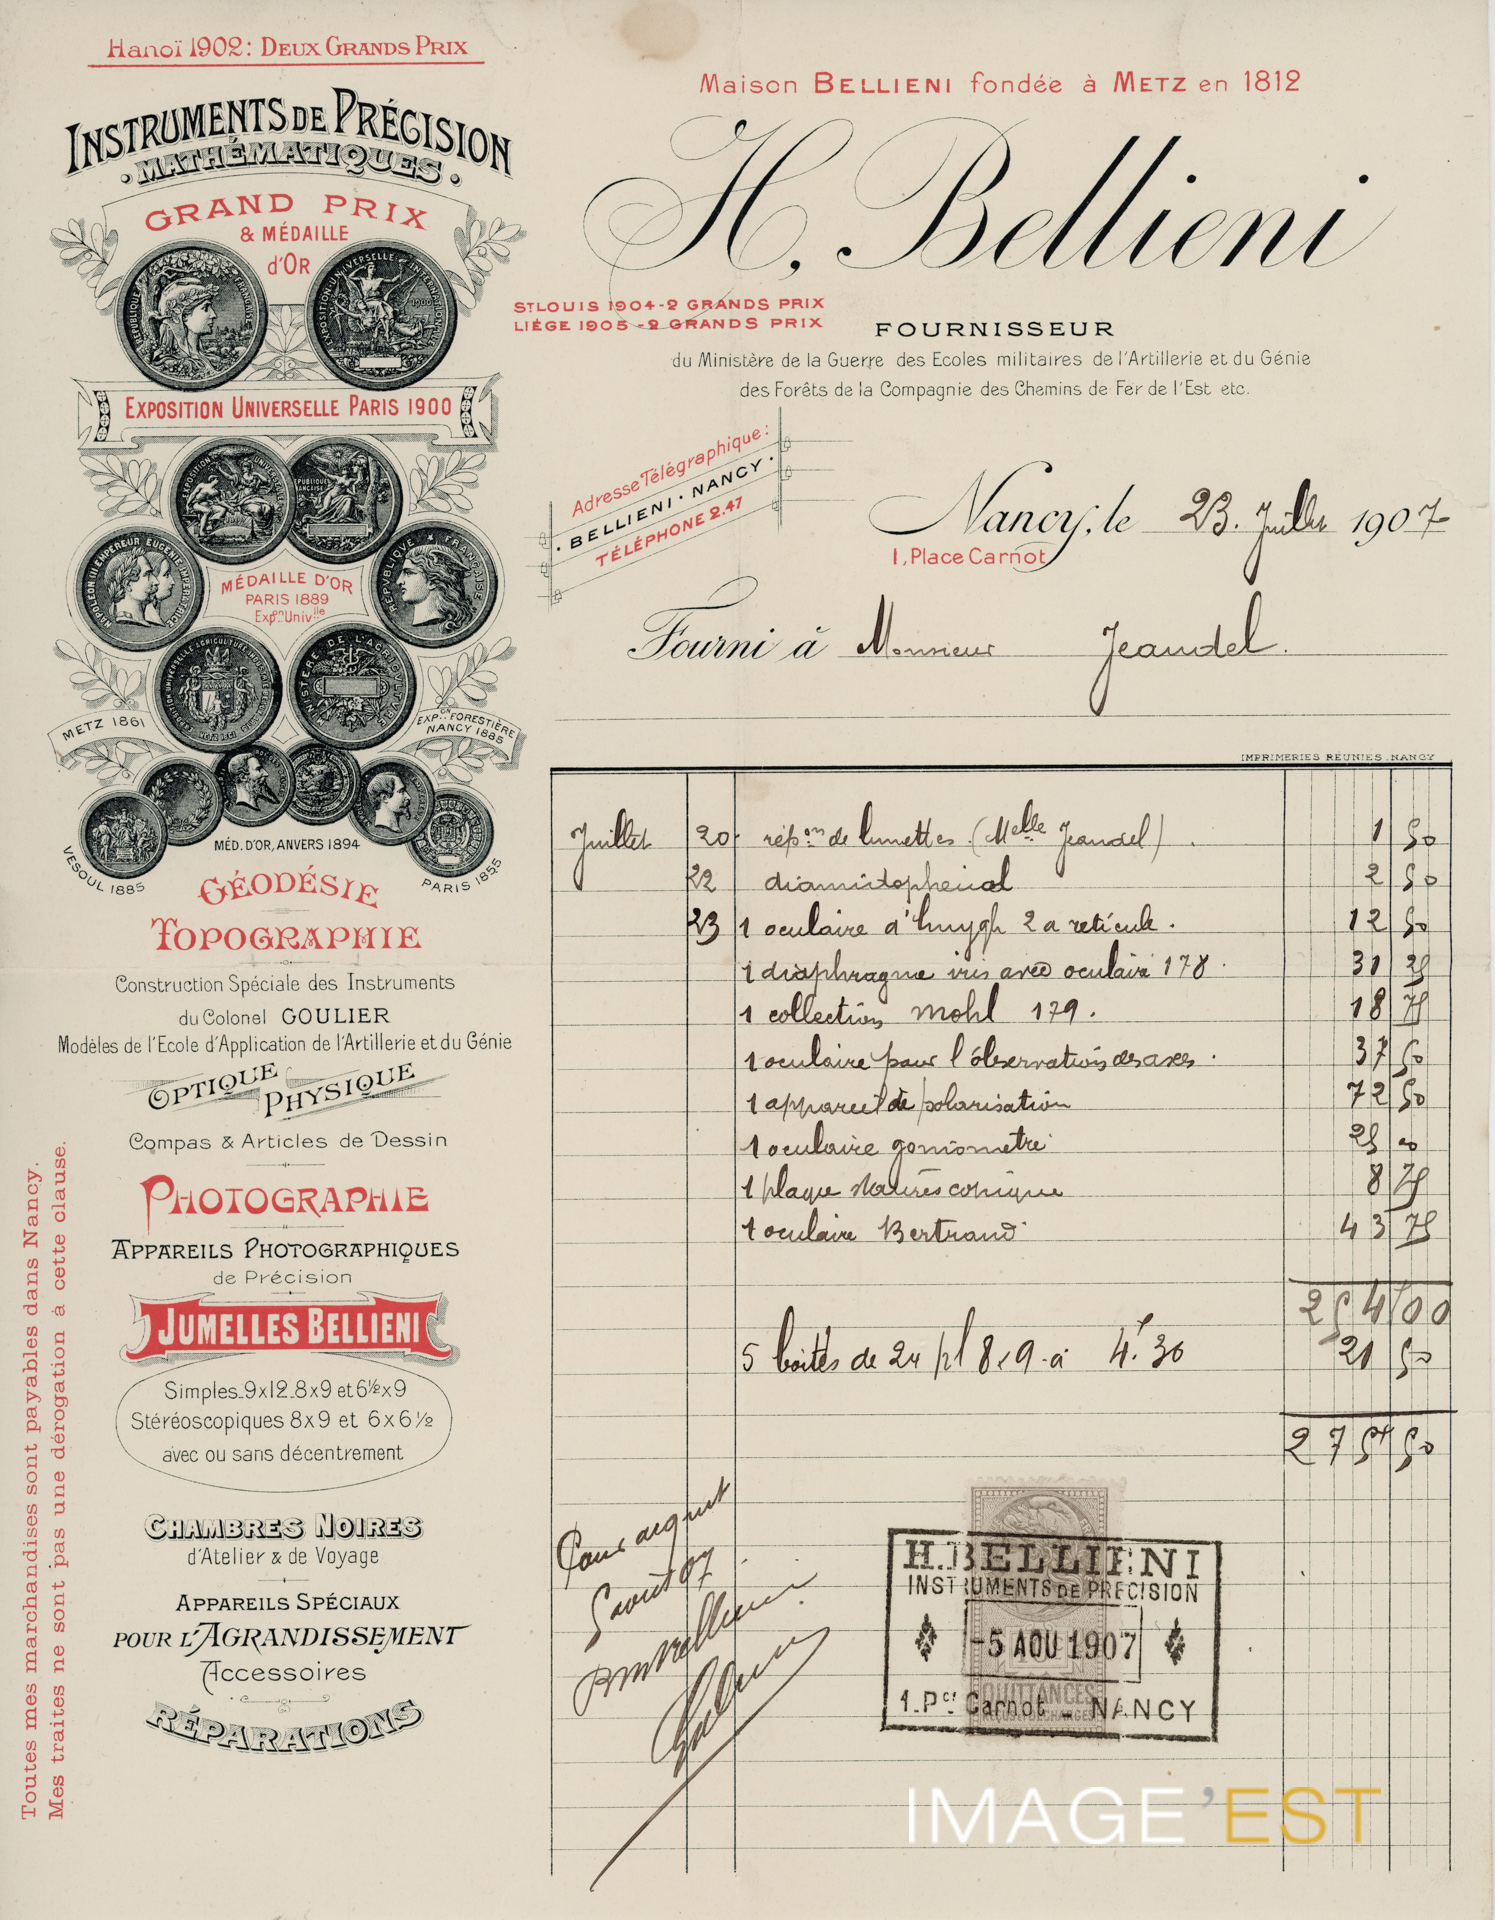 Hanoï 1902: DEUX GRANDS PRIX
INSTRUMENTS DE PRÉCISION
MATHÉMATIQUES
GRAND PRIX
& MÉDAILLE
d'OR
EXPOSITION UNIVERSELLE PARIS 1900
NAPOLEON III EMPEREUR EUGÉNIE IMPÉRATRICE
REPUBLIQUE FRANÇAISE
MÉDAILLE D'OR
PARIS 1889
Expon Univlle
METZ 1861
EXPON FORESTIÈRE
NANCY 1885
MÉD. D'OR, ANVERS 1894
VESOUL 1885
PARIS 1855
GÉODÉSIE
TOPOGRAPHIE
Construction Spéciale des Instruments
du Colonel GOULIER
Modèles de l'Ecole d'Application de l'Artillerie et du Génie
OPTIQUE
PHYSIQUE
Compas & Articles de Dessin
PHOTOGRAPHIE
APPAREILS PHOTOGRAPHIQUES
de Précision
JUMELLES BELLIENI
Simples_9x12_8x9 et 6½x9
Stéréoscopiques 8x9 et 6x6½
avec ou sans décentrement
CHAMBRES NOIRES
d'Atelier & de Voyage
APPAREILS SPÉCIAUX
POUR L'AGRANDISSEMENT
Accessoires
RÉPARATIONS
Toutes mes marchandises sont payables dans Nancy.
Mes traites ne sont pas une dérogation à cette clause.
Maison BELLIENI fondée à METZ en 1812
H. Bellieni
ST LOUIS 1904-2 GRANDS PRIX
LIÉGE 1905-2 GRANDS PRIX
FOURNISSEUR
du Ministère de la Guerre des Ecoles militaires de l'Artillerie et du Génie
des Forêts de la Compagnie des Chemins de Fer de l'Est etc.
Adresse Télégraphique:
· BELLIENI · NANCY ·
TÉLÉPHONE 2.47
Nancy, le 23. Juillet 1907
1, Place Carnot
Fourni à Monsieur Jeandel.
IMPRIMERIES RÉUNIES. NANCY
Juillet 20 répon de lunettes (Melle Jeandel) 1 50
22 2 50
23 1 oculaire d'huygh 2 a réticule. 12 50
1 diaphragme iris avec oculaire 178. 31 25
1 collection Mohl 179. 18 75
1 oculaire pour l'observation des axes. 37 50
1 appareil de polarisation 72 50
1 oculaire goniometre 25 00
1 plaque 8 75
1 oculaire Bertrand 43 75
254 00
5 boites de 24 pl 8x9 à 4f.30 21 50
275 50
Pour acquit
5 août 07
H. BELLIENI
INSTRUMENTS DE PRÉCISION
-5 AOU 1907
QUITTANCES
1. Pce Carnot - NANCY
IMAGE'EST